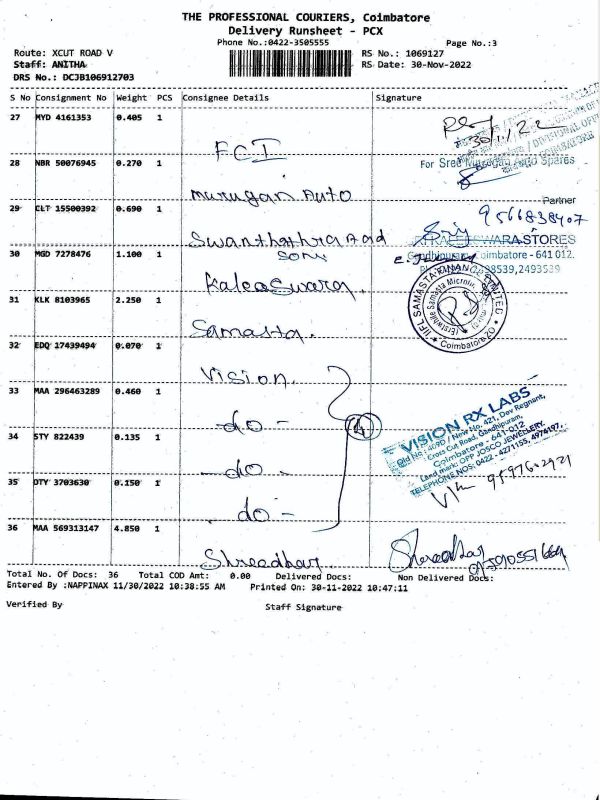 THE PROFESSIONAL COURIERS, Coimbatore
Delivery Runsheet - PCX
Phone No.:0422-3505555
Page No.:3
Route: XCUT ROAD V
RS No.: 1069127
Staff: ANITHA
RS Date: 30-Nov-2022
DRS No.: DCJB106912703
S No Consignment No Weight PCS Consignee Details Signature
27 MYD 4161353 0.405 1
FCI
30/11/22
/ DIVISIONAL OFF
COIMBATORE
28 NBR 50076945 0.270 1
Murugan Auto
For Sree Murugan Auto Spares
Partner
29 CLT 15500392 0.690 1
Swanthathra Aad
9566838407
30 MGD 7278476 1.100 1
Kaleaswara
STORES
Gandhipuram, Coimbatore - 641 012.
2493539
31 KLK 8103965 2.250 1
Samasta.
IIFL SAMASTA FINANCE LIMITED
Coimbatore
32 EDQ 17439494 0.070 1
Vision.
33 MAA 296463289 0.460 1
-do-
(4)
VISION RX LABS
Old No: 409D / New No. 421, Dev Regnant,
Cross Cut Road, Gandhipuram,
Coimbatore - 641-012
Land mark: OPP JOSCO JEWELLERY.
TELEPHONE NOS: 0422 - 4271155, 4974197.
34 STY 822439 0.135 1
-do-
35 DTY 3703630 0.150 1
-do-
36 MAA 569313147 4.850 1
Shreedhar
Shreedhar
Total No. Of Docs: 36 Total COD Amt: 0.00 Delivered Docs: Non Delivered Docs:
Entered By :NAPPINAX 11/30/2022 10:38:55 AM Printed On: 30-11-2022 10:47:11
Verified By Staff Signature